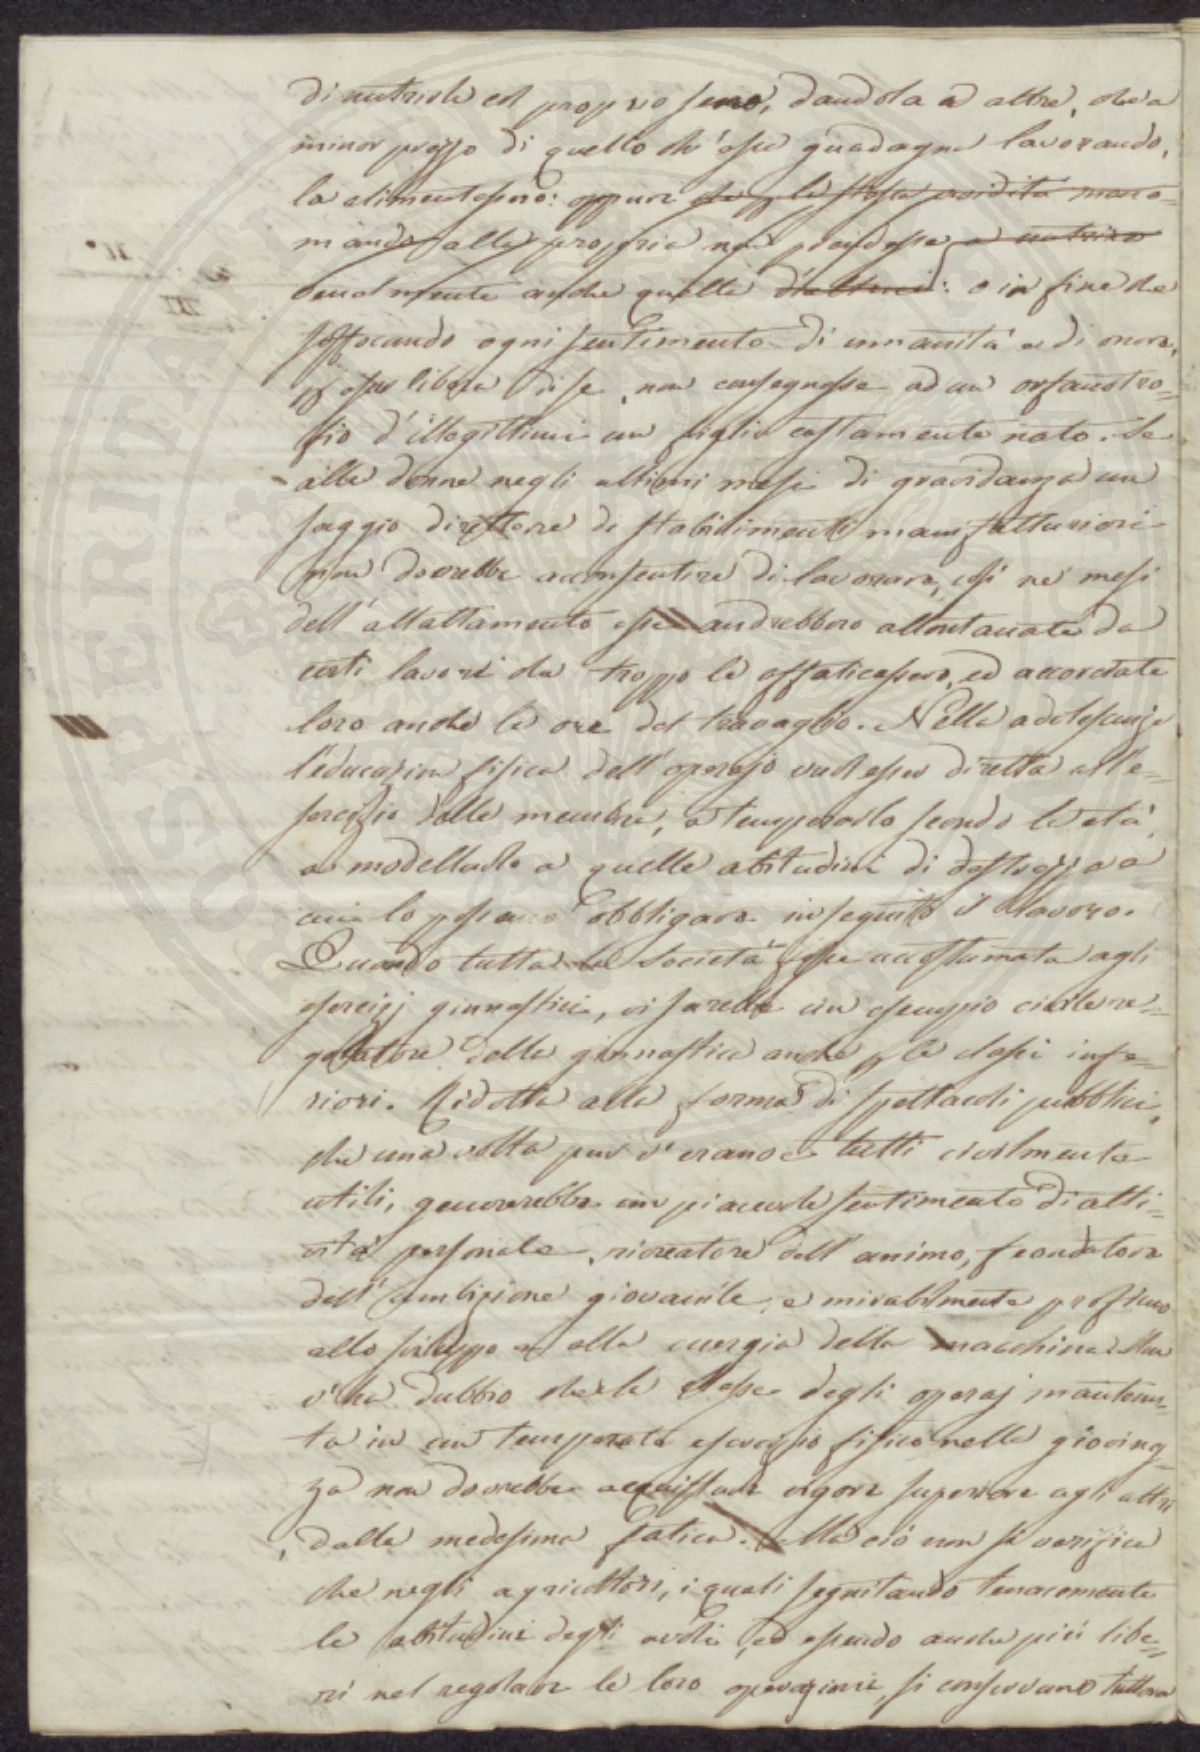 di nutrirla col proprio seno, dandola a altre, che a
minor prezzo di quello ch'essa guadagna lavorando,
la alimentassero: oppure che per la stessa avidità mano
mandando alla propria non prendesse a nutrire
venalmente anche quella d'altrui: o in fine che
soffocando ogni sentimento di umanità e di onore,
per esser libera di se, non consegnasse ad un orfanotro=
fio d'illegittimi un figlio castamente nato. Se
alle donne negli ultimi mesi di gravidanza un
saggio direttore di stabilimenti manifatturieri
non dovrebbe acconsentire di lavorare, così ne' mesi
dell'allattamento esse andrebbero allontanate da
certi lavori che troppo le affaticassero, ed accorciate
loro anche le ore del travaglio. Nella adolescenza
l'educazion fisica dell'operajo vuol esser diretta all'e=
sercizio delle membra, a temperarlo secondo le età,
a modellarlo a quelle abitudini di destrezza a
cui lo possono obbligare in seguito il lavoro.
Quando tutta la società fosse accostumata agli
esercizj ginnastici, vi sarebbe un esempio civile re=
golatore della ginnastica anche per le classi infe=
riori. Ridotta alla forma di spettacoli pubblici,
che una volta pur v'erano e tutti civilmente
utili, genererebbe un piacevole sentimento di atti=
vità personale, ricreatore dell'animo, fecondatore
dell'ambizione giovanile, e mirabilmente proficuo
allo sviluppo e alla energia della macchina. Non
v'ha dubbio che la classe degli operaj mantenu=
ta in un temperato esercizio fisico nella giovinez
za non dovrebbe acquistare vigore superiore agli altri
dalla medesima fatica. Ma ciò non si verifica
che negli agricoltori, i quali seguitando tenacemente
le abitudini degli avoli, ed essendo anche più libe=
ri nel regolare le loro operazioni, si conservano tuttora